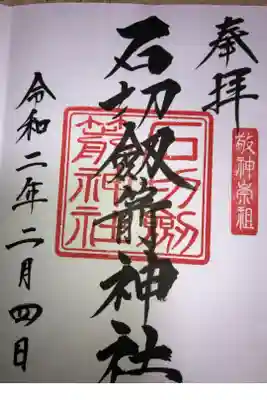 奉拝
敬神崇祖
石切劔箭神社
石切劔
箭神社
令和二年二月四日